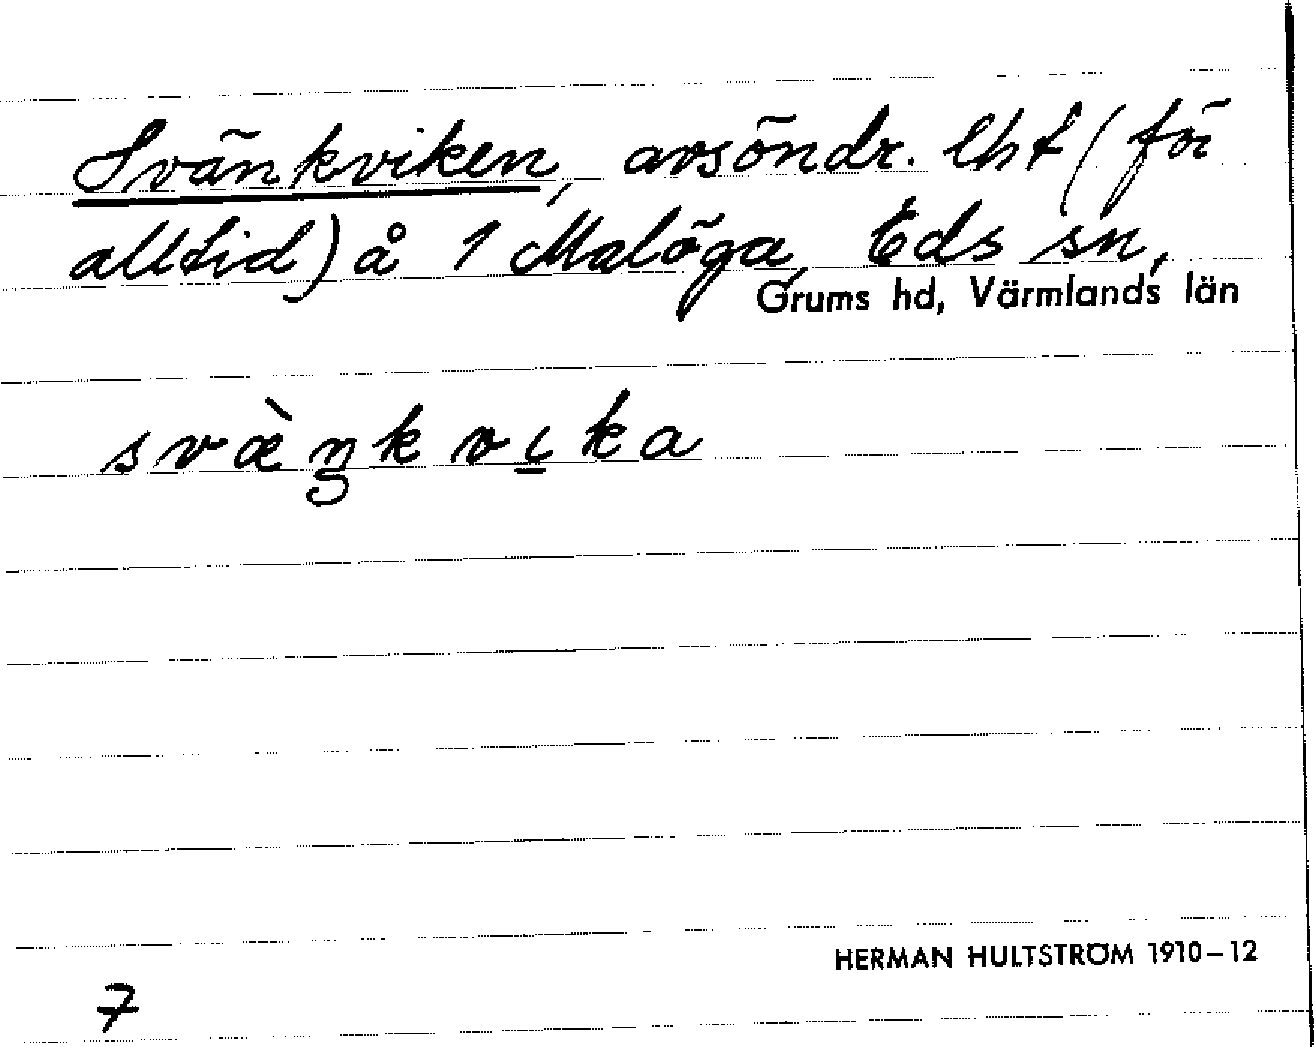 Svänkviken, avsöndr. lht (för
alltid) å 1 Malöga, Eds sn,
Grums hd, Värmlands län
svæ̀ŋkvıka
HERMAN HULTSTRÖM 1910–12
7